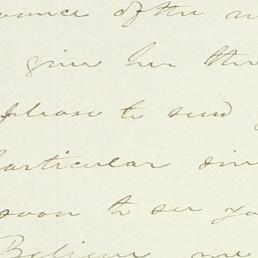 ounce of the
give her the
please to send
particular
soon to see yo
Believe me